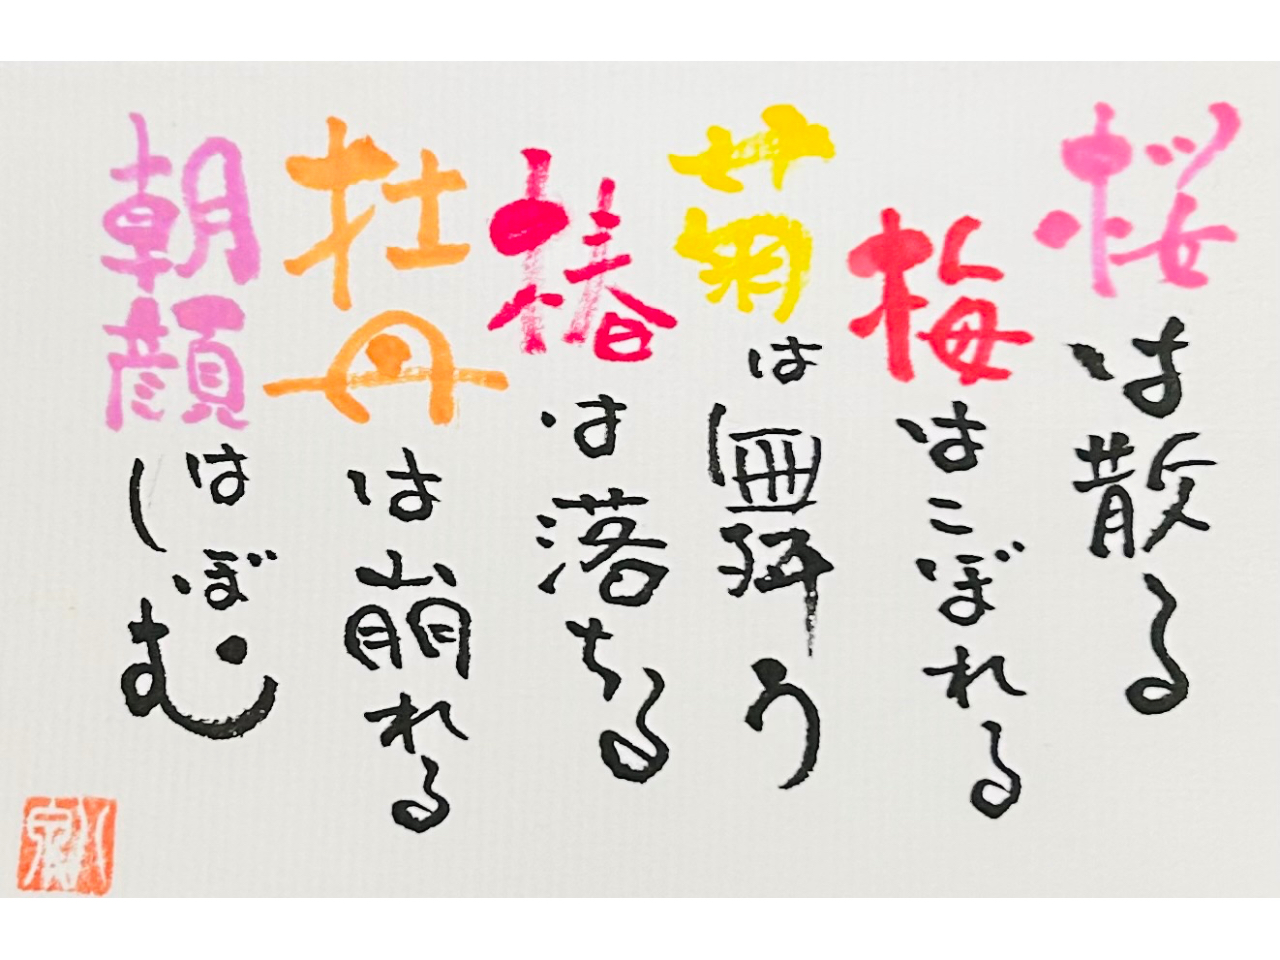 桜は散る
梅はこぼれる
菊は舞う
椿は落ちる
牡丹は崩れる
朝顔はしぼむ